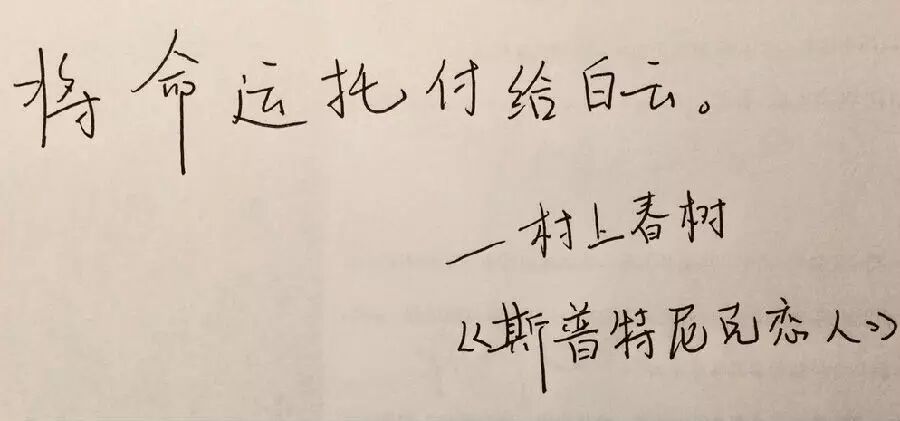 将命运托付给白云。
—村上春树
《斯普特尼克恋人》